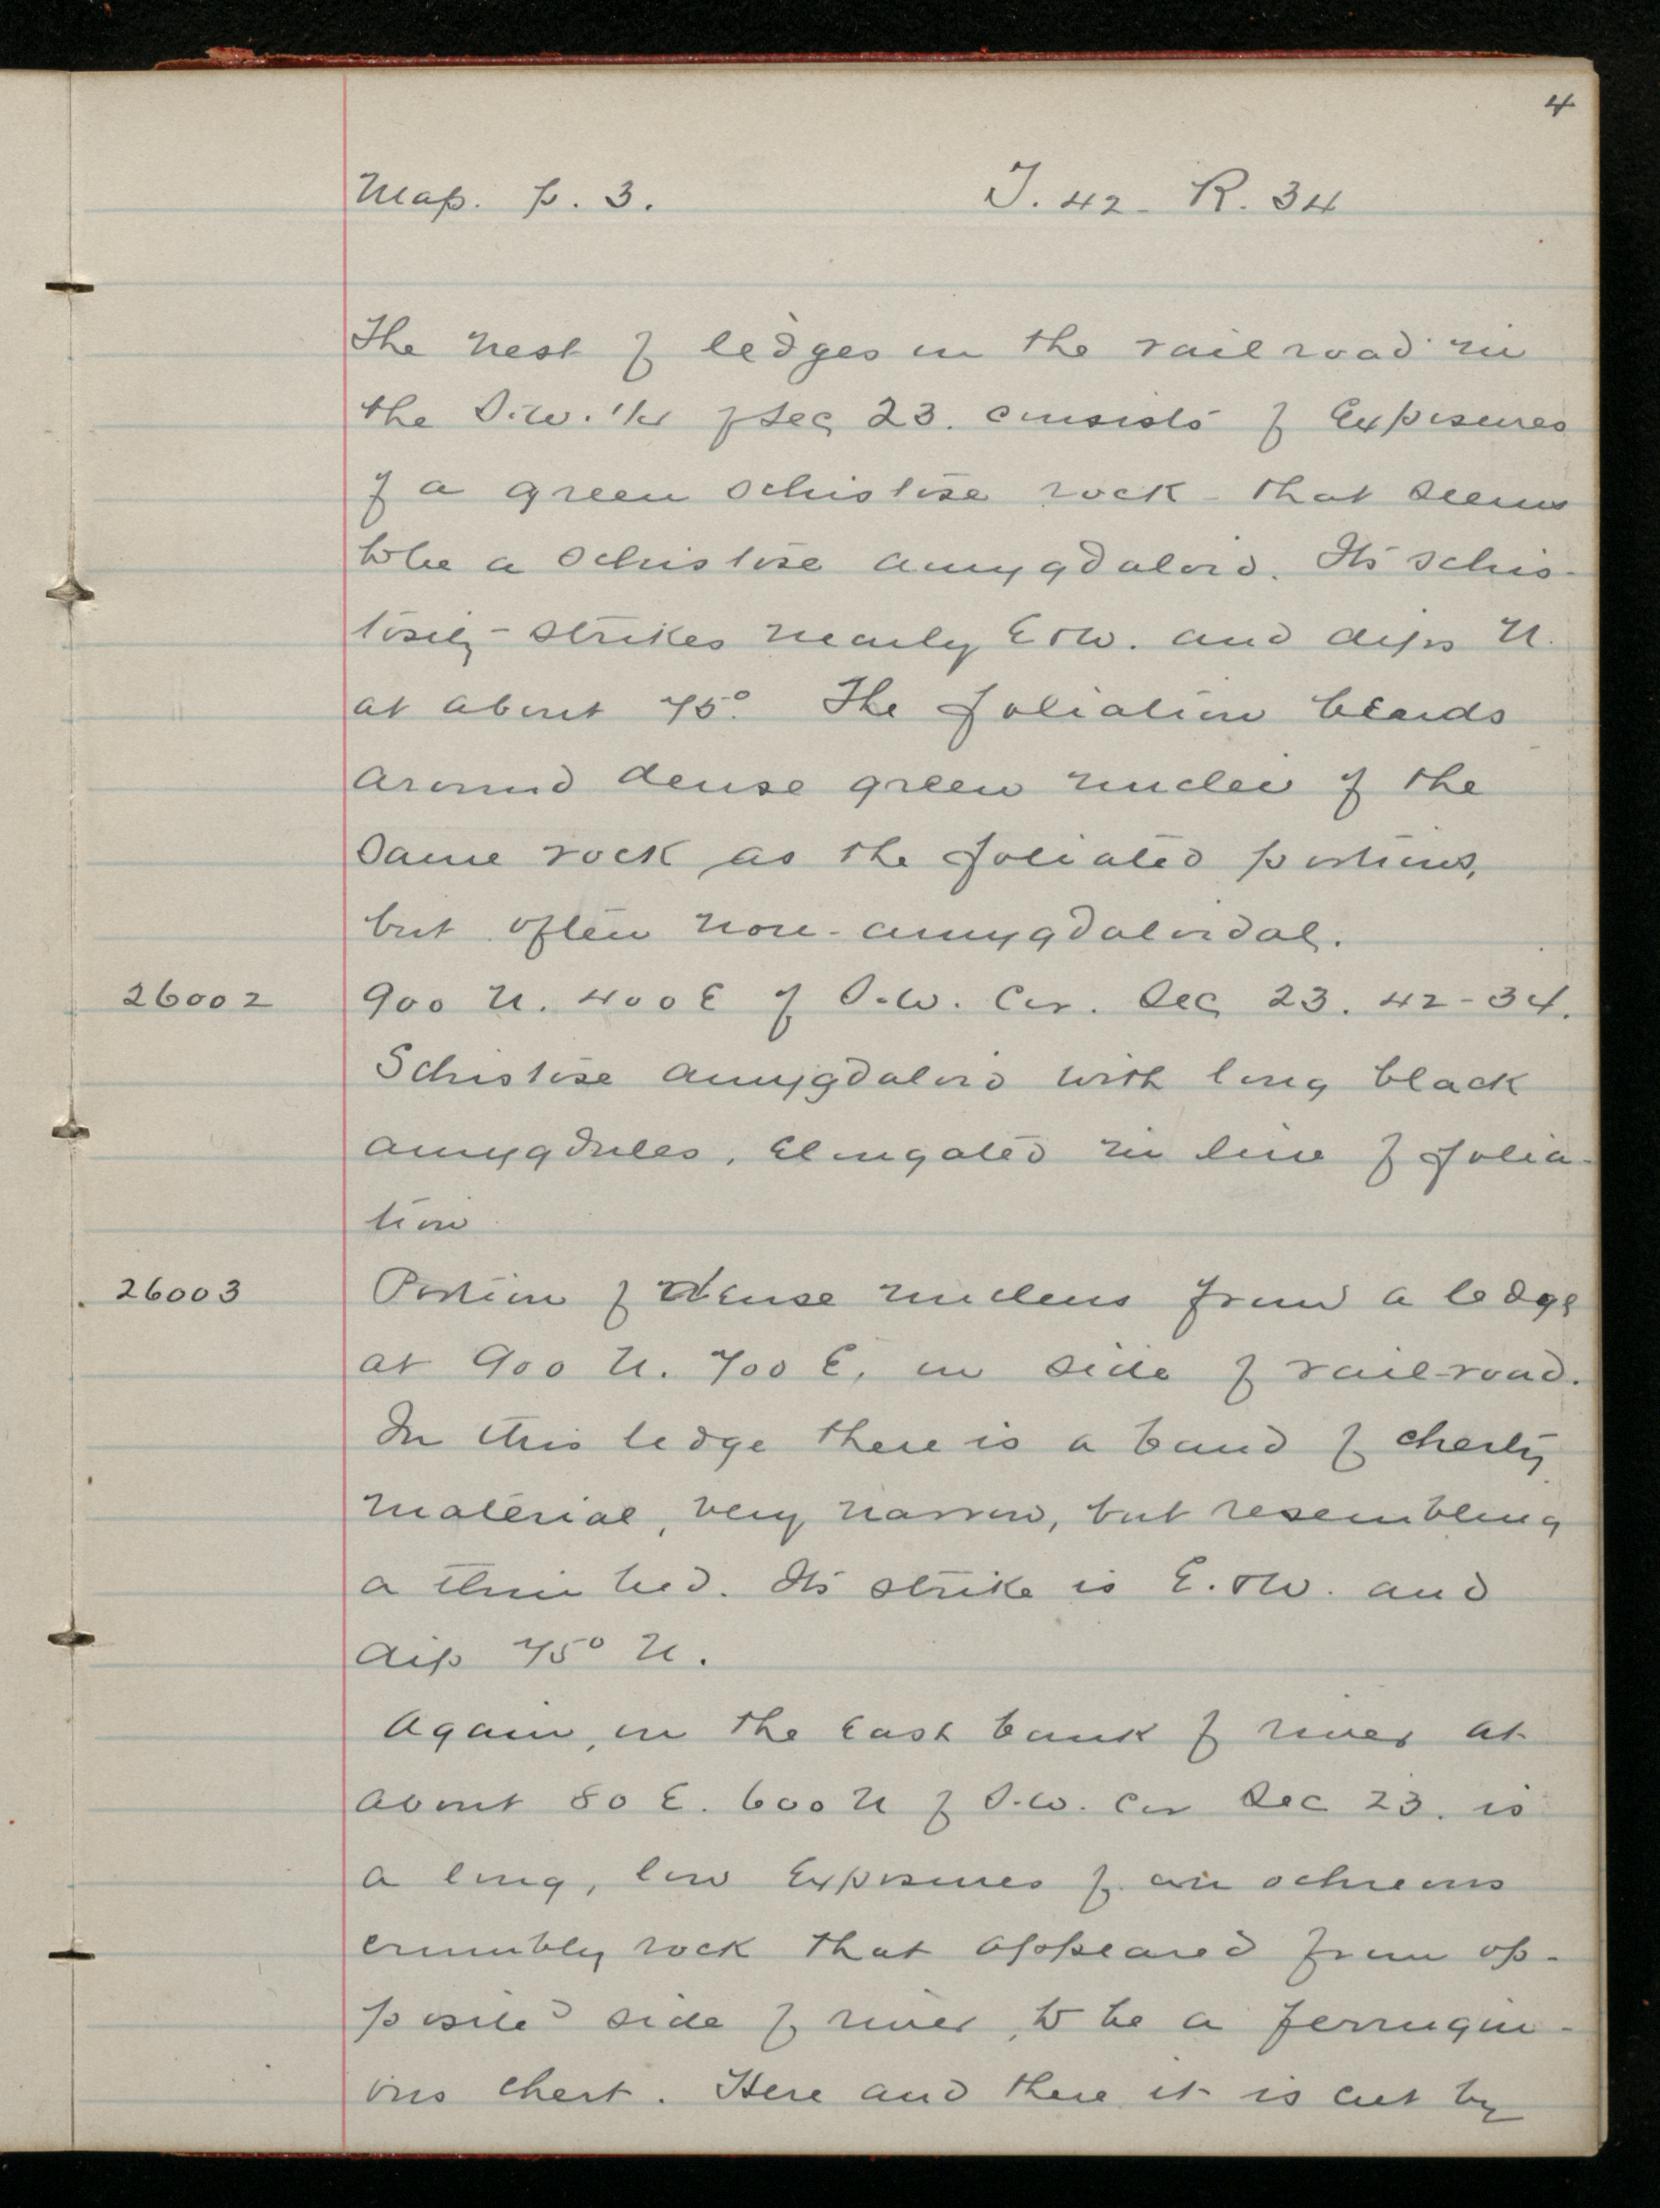 4
Map. p. 3. T. 42 - R. 34
The nest of ledges on the rail road in
the S.W. 1/4 of Sec 23. consists of Exposures
of a green schistose rock that seems
to be a schistose amygdaloid. Its schis-
tosity strikes nearly E & W. and dips N.
at about 75°. The foliation bends
around dense green nuclei of the
same rock as the foliated portions,
but often non-amygdaloidal.
26002 900 N. 400 E of S.W. Cor. Sec 23. 42-34.
Schistose amygdaloid with long black
amygdules, elongated in line of folia-
tion
26003 Portion of dense nucleus from a ledge
at 900 N. 700 E. on side of rail-road.
In this ledge there is a band of cherty
material, very narrow, but resembling
a thin bed. Its strike is E. & W. and
dip 75° N.
Again, on the East bank of river at
about 80 E. 600 N of S.W. Cor Sec 23. is
a long, low Exposures of an ochreous
crumbly rock that appeared from op-
posite side of river, to be a ferrugin-
ous chert. Here and there it is cut by